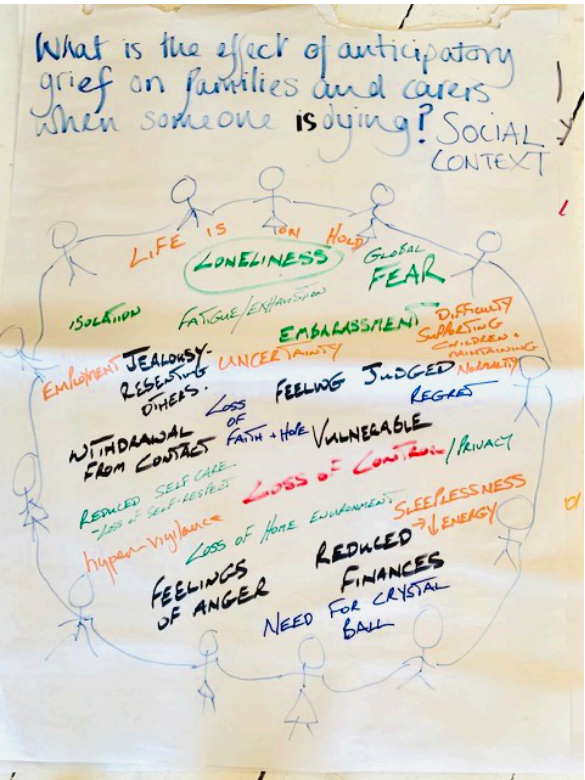 What is the effect of anticipatory
grief on families and carers
when someone is dying? SOCIAL
CONTEXT
LIFE IS ON HOLD
LONELINESS
GLOBAL
FEAR
ISOLATION
FATIGUE/EXHAUSTION
EMBARASSMENT
DIFFICULTY
SUPPORTING
CHILDREN +
MAINTAINING
NORMALITY
EMPLOYMENT
JEALOUSY-
RESENTING
OTHERS.
UNCERTAINTY
FEELING JUDGED
REGRET
LOSS
OF
FAITH + HOPE
VULNERABLE
WITHDRAWAL
FROM CONTACT
LOSS OF CONTROL /PRIVACY
REDUCED SELF CARE
-LOSS OF SELF-RESPECT
hyper-vigilance
LOSS OF HOME ENVIRONMENT
SLEEPLESSNESS
→↓ENERGY
FEELINGS
OF ANGER
REDUCED
FINANCES
NEED FOR CRYSTAL
BALL